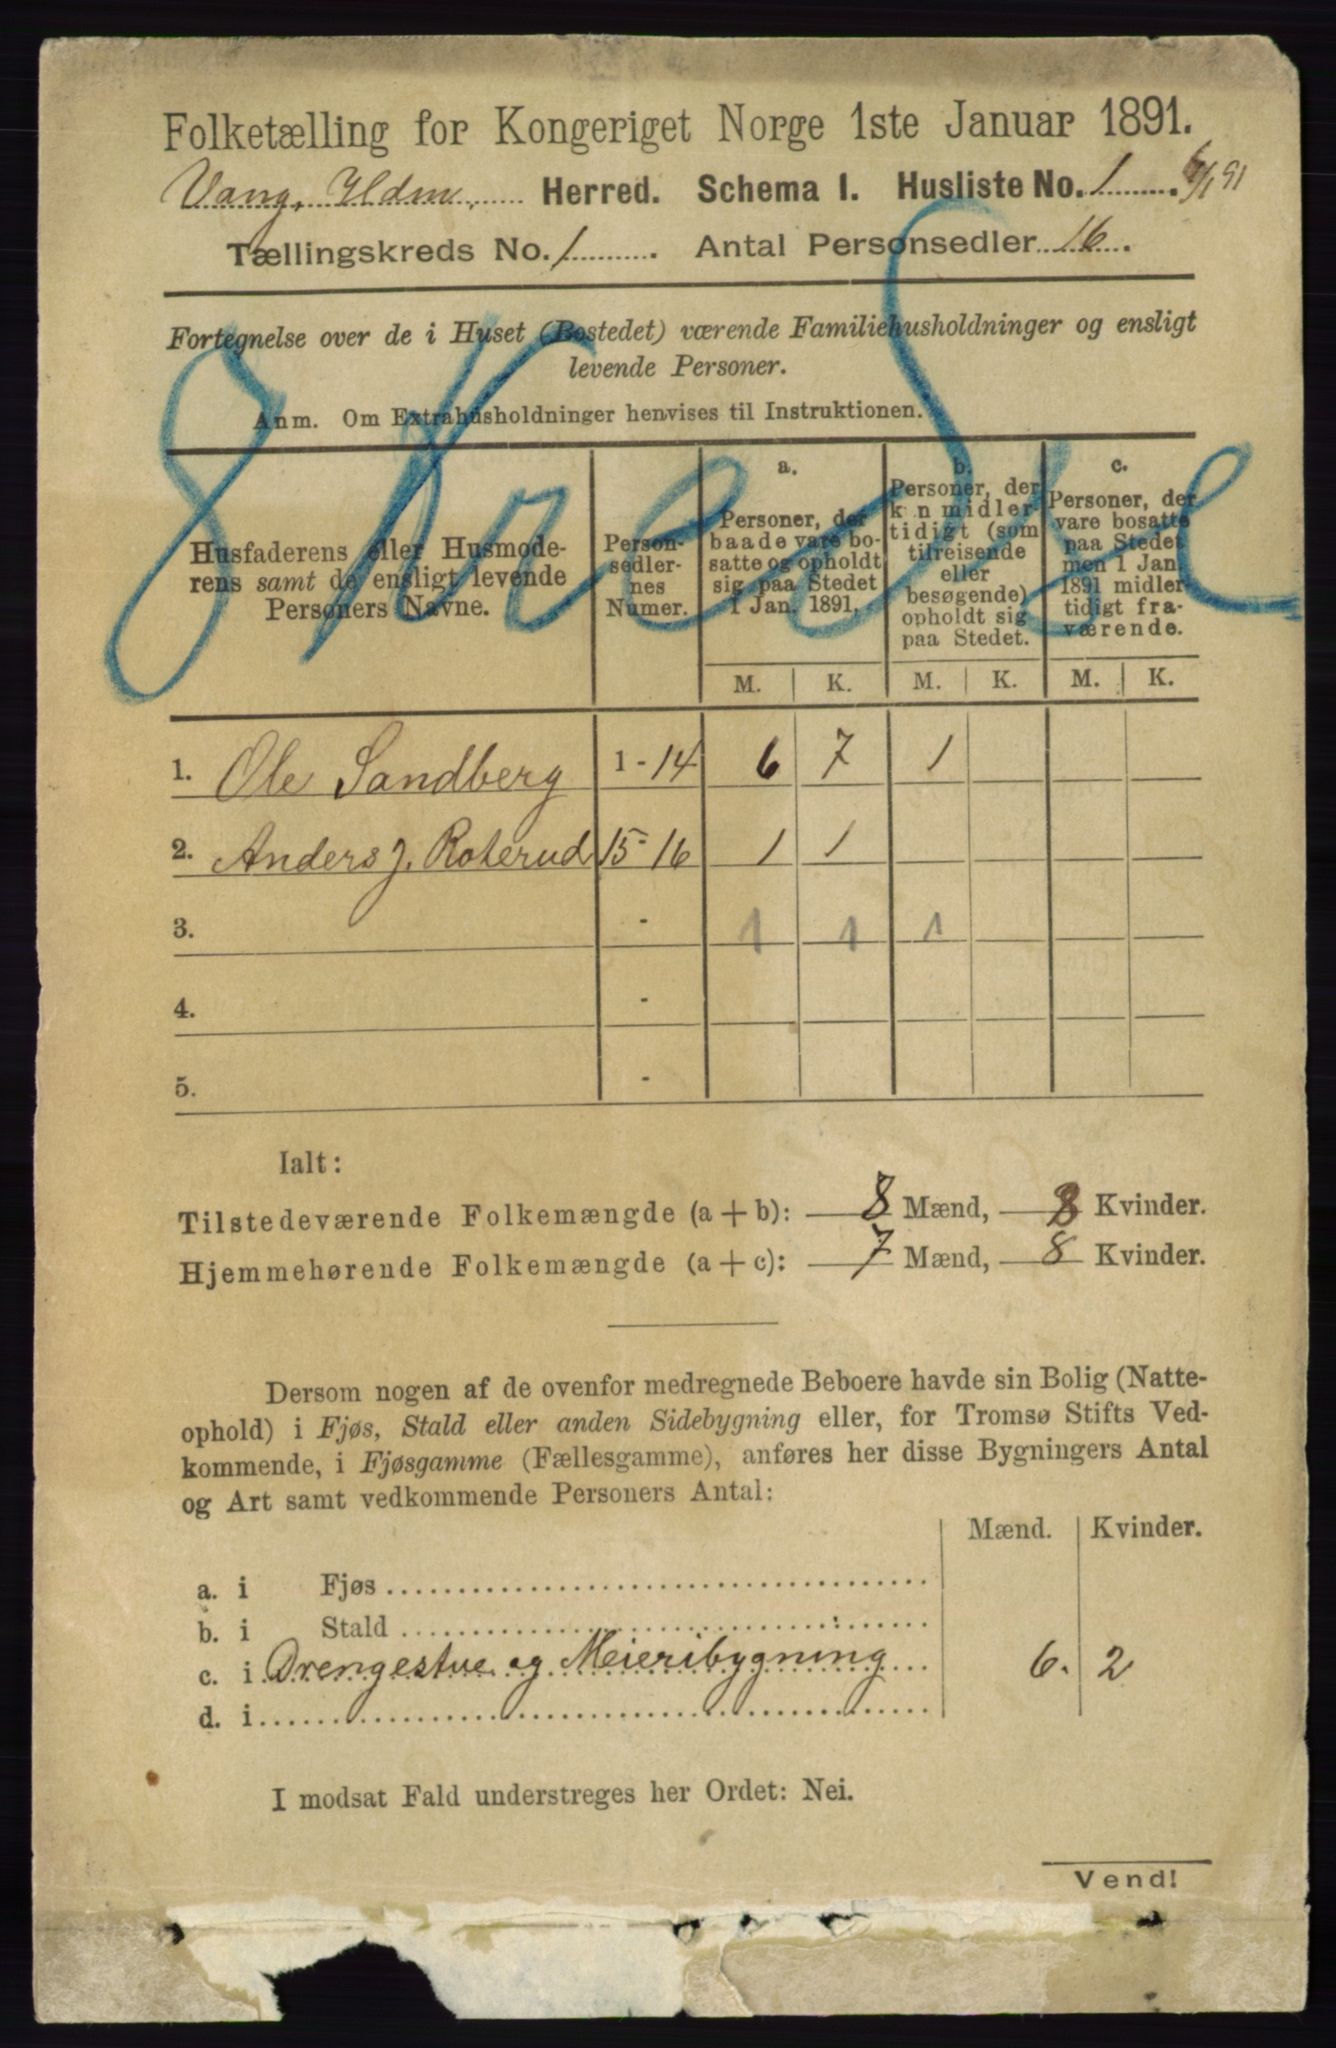 Folketælling for Kongeriget Norge 1ste Januar 1891.
Vang, Hdm, Herred. Schema 1. Husliste No. 1. 6/1 91
Tællingskreds No. 1. Antal Personsedler 16.
Fortegnelse over de i Huset (Bostedet) værende Familiehusholdninger og ensligt
levende Personer.
Anm. Om Extrahusholdninger henvises til Instruktionen.
8 Kredse
Husfaderens eller Husmode-
rens samt de ensligt levende
Personers Navne.
Person-
sedler-
nes
Numer.
a.
Personer, der
baade vare bo-
satte og opholdt
sig paa Stedet
1 Jan. 1891.
b.
Personer, der
kun midler-
tidigt (som
tilreisende
eller
besøgende)
opholdt sig
paa Stedet.
c.
Personer, der
vare bosatte
paa Stedet
men 1 Jan.
1891 midler-
tidigt fra-
værende.
M. K. M. K. M. K.
1. Ole Sandberg 1 - 14 6 7 1
2. Anders J. Roterud 15 - 16 1 1
3. - 1 1 1
4. -
5. -
Ialt:
Tilstedeværende Folkemængde (a + b): 8 Mænd, 8 Kvinder.
Hjemmehørende Folkemængde (a + c): 7 Mænd, 8 Kvinder.
Dersom nogen af de ovenfor medregnede Beboere havde sin Bolig (Natte-
ophold) i Fjøs, Stald eller anden Sidebygning eller, for Tromsø Stifts Ved-
kommende, i Fjøsgamme (Fællesgamme), anføres her disse Bygningers Antal
og Art samt vedkommende Personers Antal:
Mænd. Kvinder.
a. i Fjøs
b. i Stald
c. i Drengestue og Meieribygning 6. 2
d. i
I modsat Fald understreges her Ordet: Nei.
Vend!